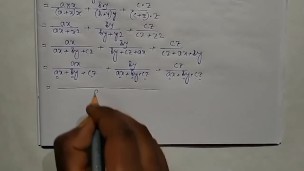 = axx/(a+x)x + by/(b+y)y + cz/(c+z)z
= ax/(ax+x²) + by/(by+y²) + cz/(cz+z²)
= ax/(ax+by+cz) + by/(by+cz+ax) + cz/(cz+ax+by)
= ax/(ax+by+cz) + by/(ax+by+cz) + cz/(ax+by+cz)
=